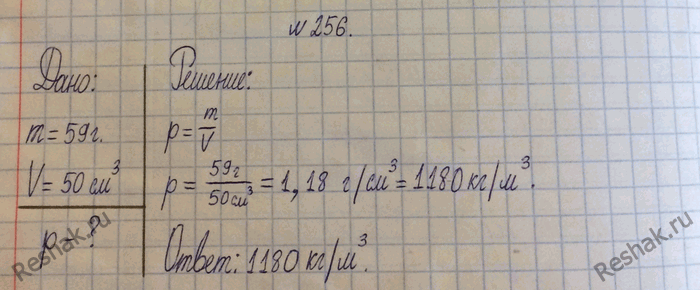 № 256.
Дано:
m = 59 г.
V = 50 см³
ρ - ?
Решение:
ρ = m/V
ρ = 59г/50см³ = 1,18 г/см³ = 1180 кг/м³.
Ответ: 1180 кг/м³.
Reshak.ru
Reshak.ru